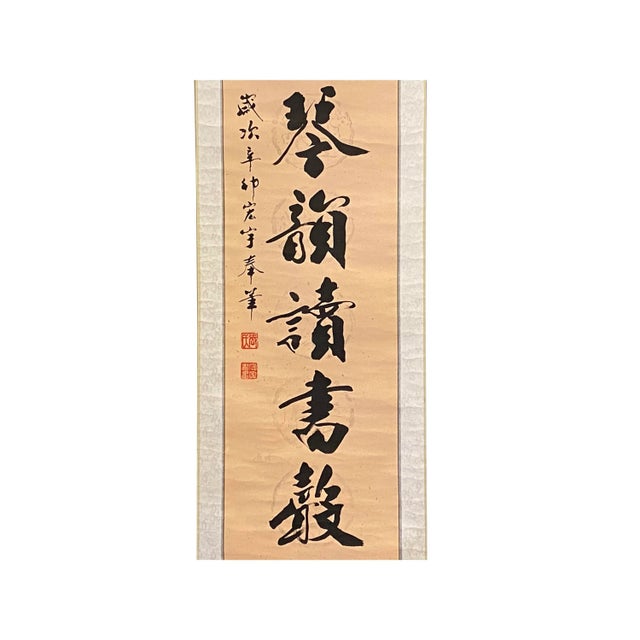 琴韻讀書聲
歲次辛卯宏宇奉筆